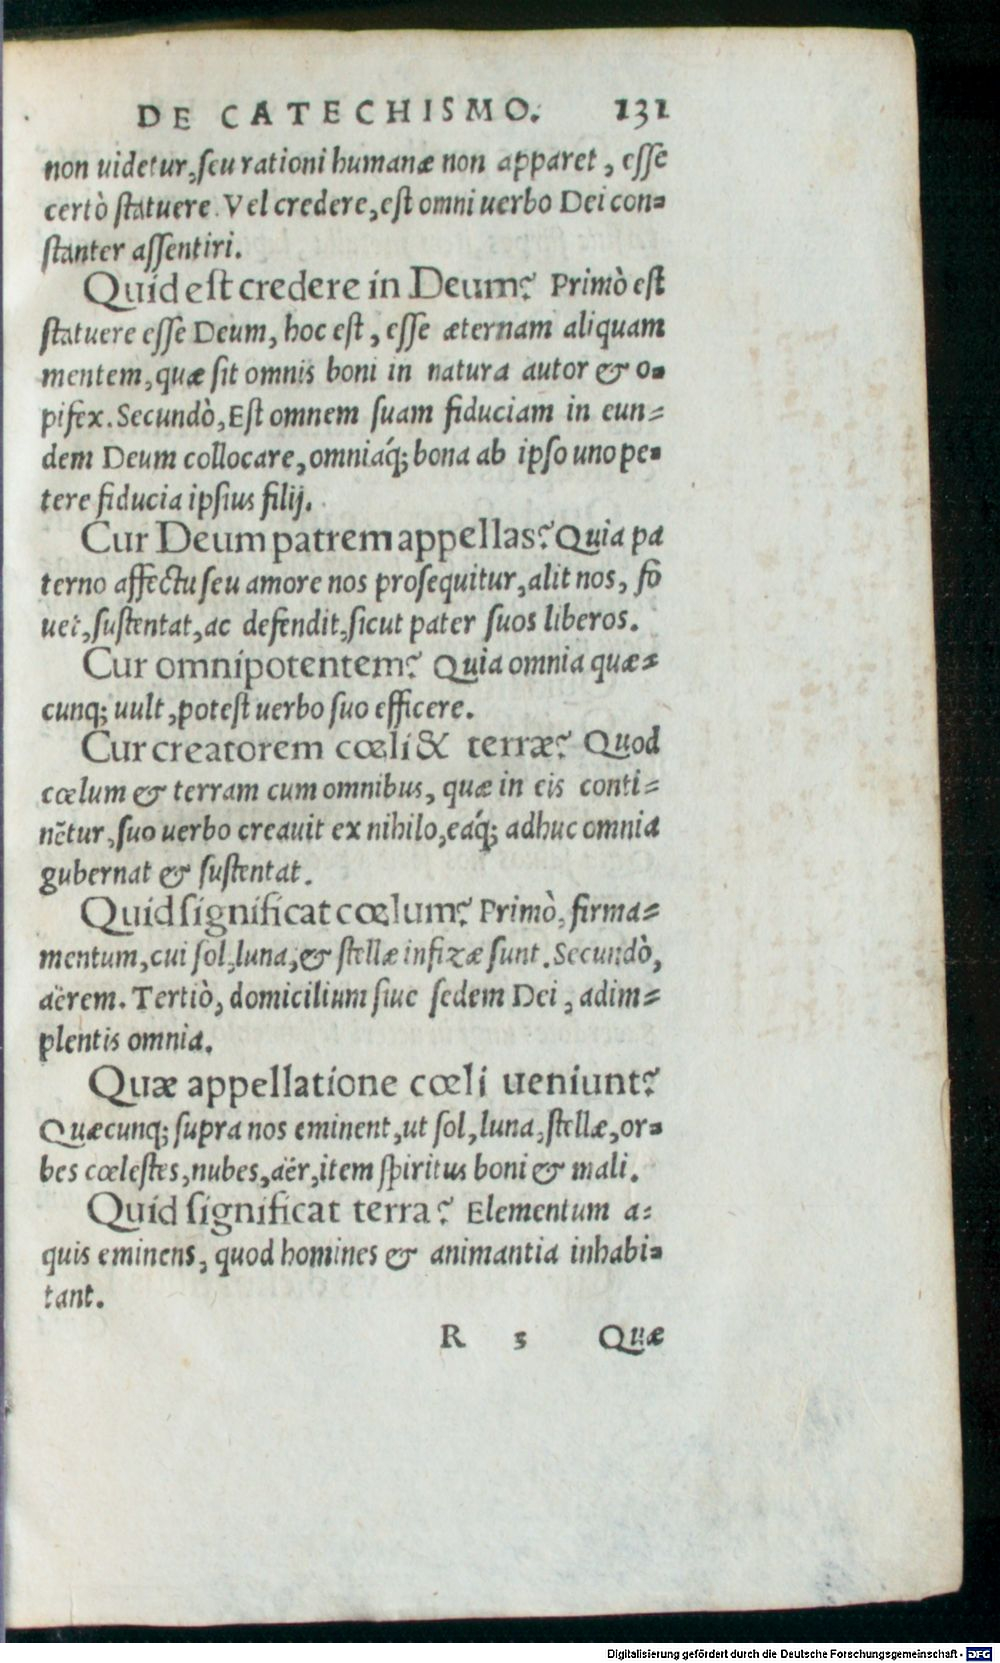 DE CATECHISMO. 131
non uidetur, seu rationi humanæ non apparet, esse
certò statuere. Vel credere, est omni uerbo Dei con-
stanter assentiri.
Quid est credere in Deum? Primò est
statuere esse Deum, hoc est, esse æternam aliquam
mentem, quæ sit omnis boni in natura autor & o-
pifex. Secundò, Est omnem suam fiduciam in eun-
dem Deum collocare, omniáq; bona ab ipso uno pe-
tere fiducia ipsius filij.
Cur Deum patrem appellas? Quia pa
terno affectu seu amore nos prosequitur, alit nos, fo
uet, sustentat, ac defendit, sicut pater suos liberos.
Cur omnipotentem? Quia omnia quæ-
cunq; uult, potest uerbo suo efficere.
Cur creatorem cœli & terræ? Quod
cœlum & terram cum omnibus, quæ in eis conti-
nẽtur, suo uerbo creauit ex nihilo, eáq; adhuc omnia
gubernat & sustentat.
Quid significat cœlum? Primò, firma-
mentum, cui sol, luna, & stellæ infixæ sunt. Secundò,
aërem. Tertiò, domicilium siue sedem Dei, adim-
plentis omnia.
Quæ appellatione cœli ueniunt?
Quæcunq; supra nos eminent, ut sol, luna, stellæ, or-
bes cœlestes, nubes, aër, item spiritus boni & mali.
Quid significat terra? Elementum a-
quis eminens, quod homines & animantia inhabi-
tant.
R 3 Quæ
Digitalisierung gefördert durch die Deutsche Forschungsgemeinschaft - DFG